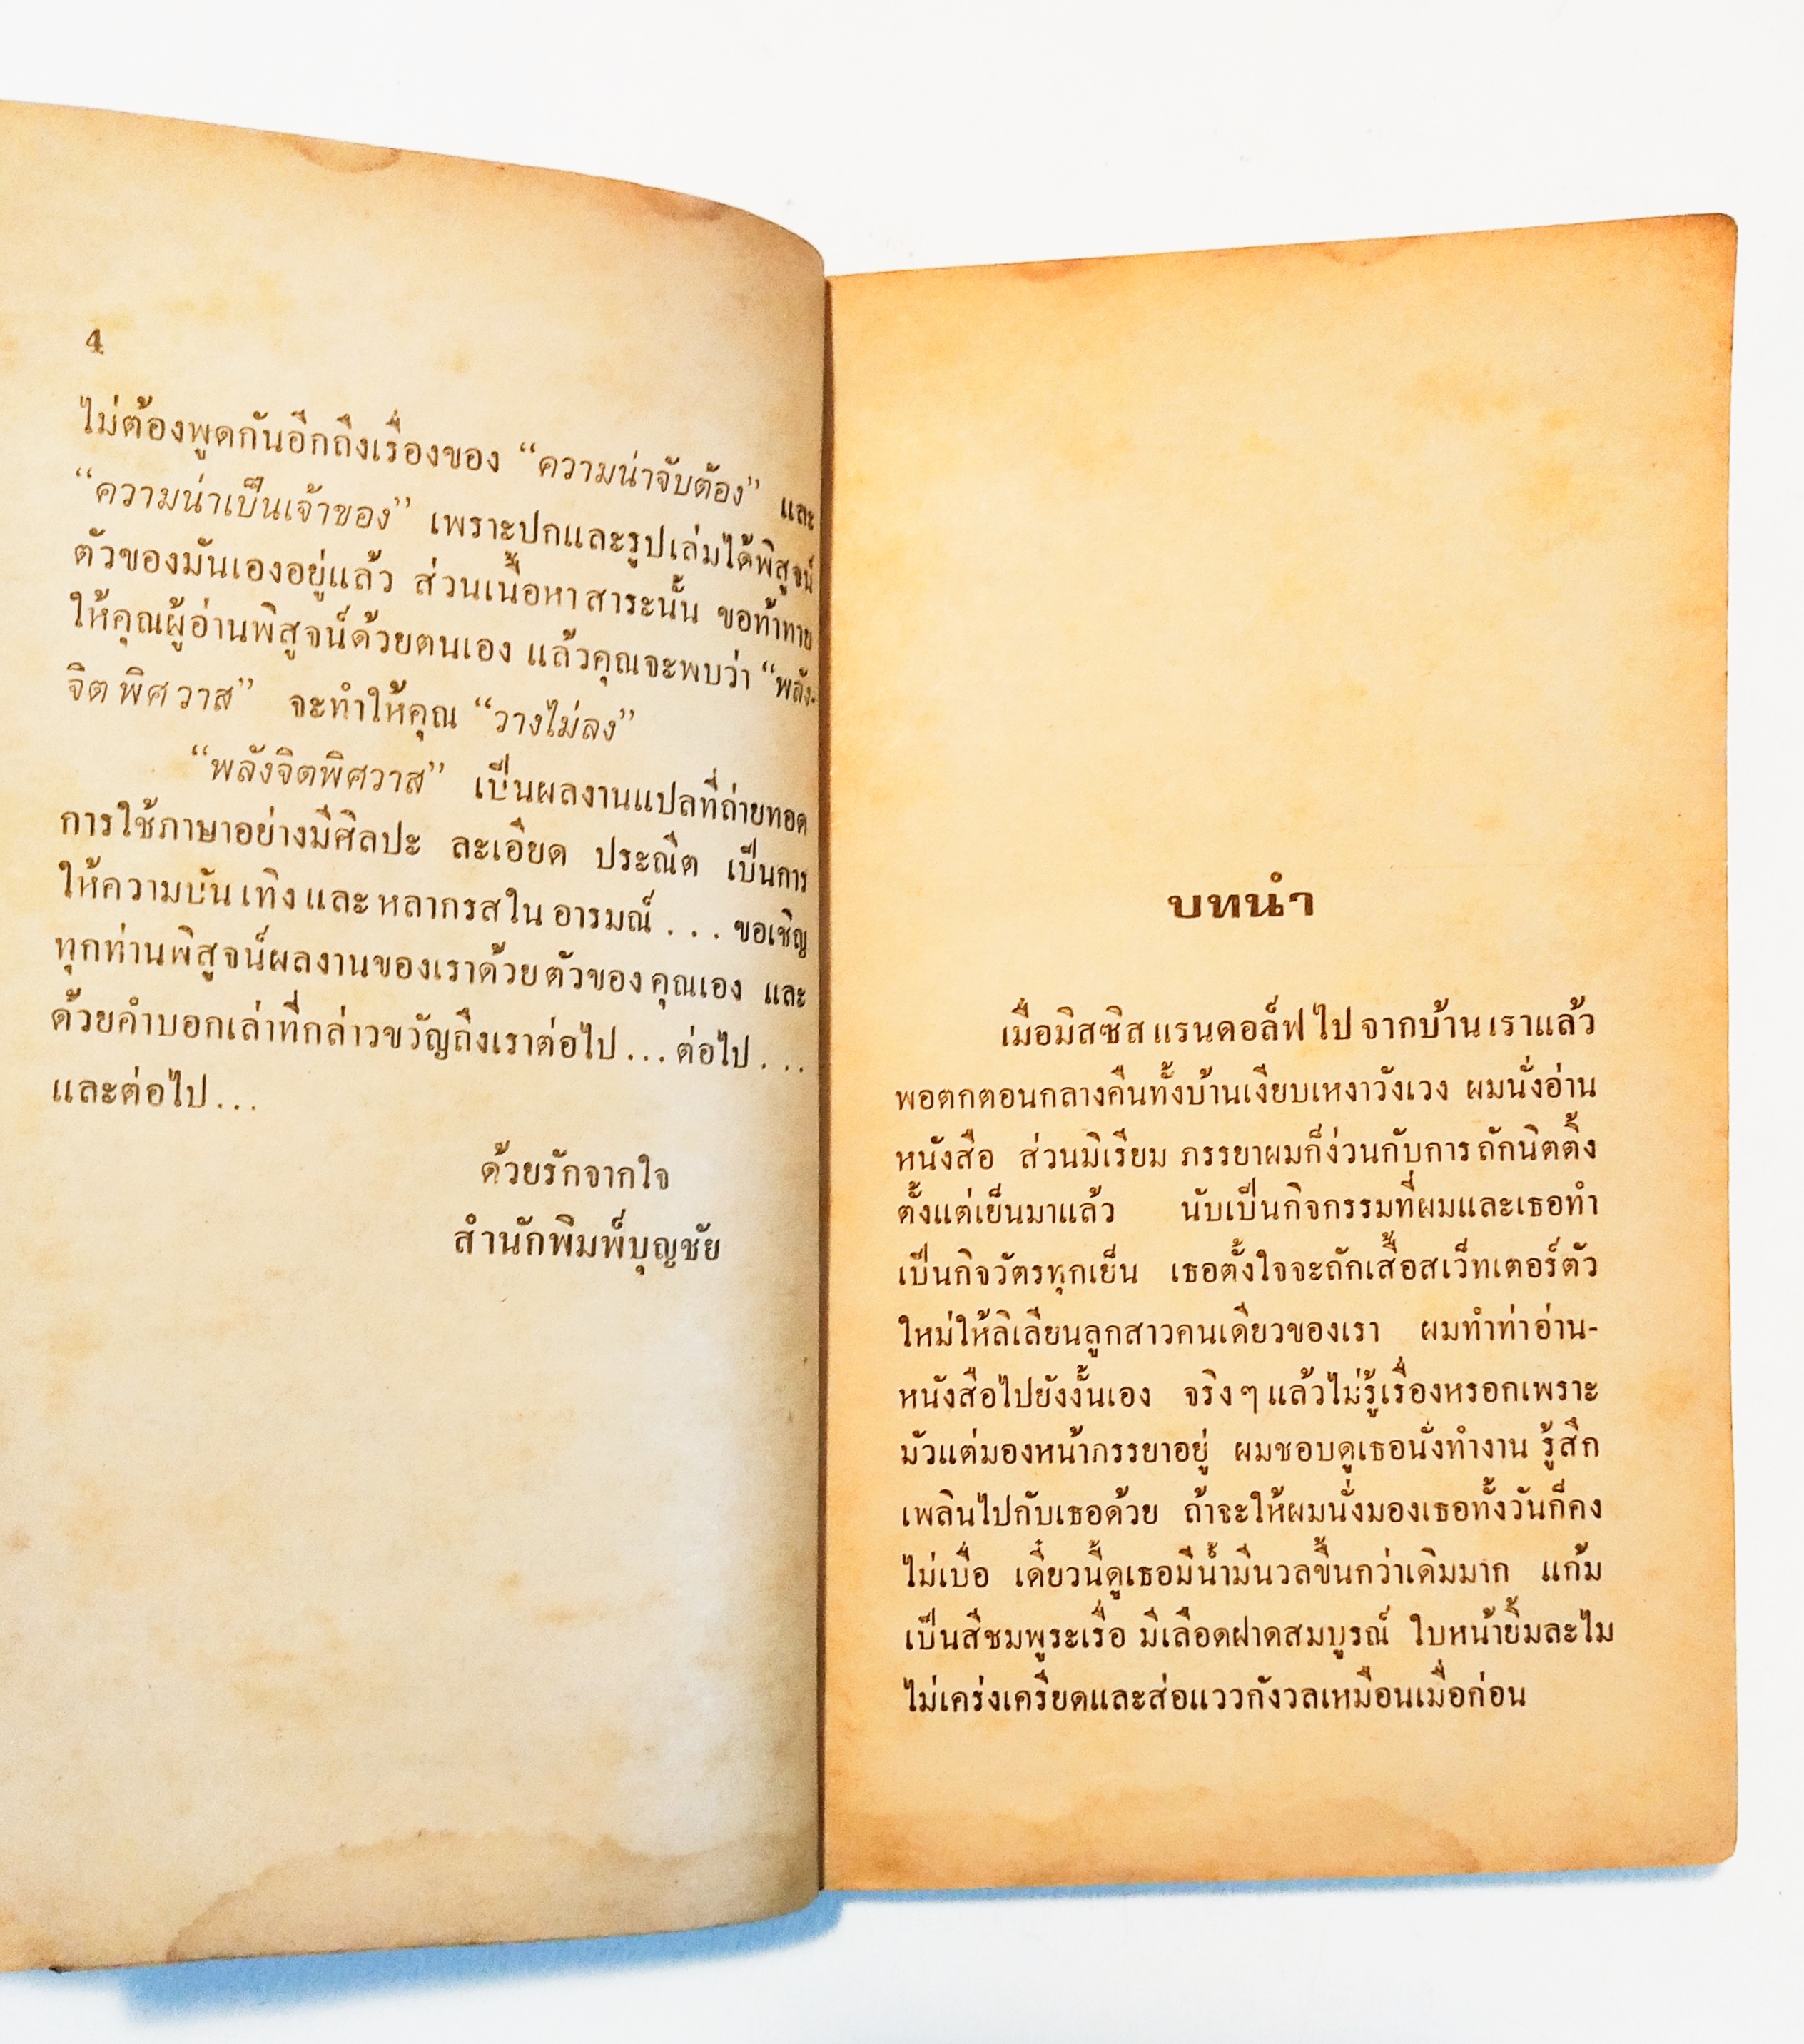 4
ไม่ต้องพูดกันอีกถึงเรื่องของ “ความน่าจับต้อง” และ
“ความน่าเป็นเจ้าของ” เพราะปกและรูปเล่มได้พิสูจน์
ตัวของมันเองอยู่แล้ว ส่วนเนื้อหาสาระนั้น ขอท้าทาย
ให้คุณผู้อ่านพิสูจน์ด้วยตนเอง แล้วคุณจะพบว่า “พลัง-
จิตพิศวาส” จะทำให้คุณ “วางไม่ลง”
“พลังจิตพิศวาส” เป็นผลงานแปลที่ถ่ายทอด
การใช้ภาษาอย่างมีศิลปะ ละเอียด ประณีต เป็นการ
ให้ความบันเทิงและหลากรสในอารมณ์ . . . ขอเชิญ
ทุกท่านพิสูจน์ผลงานของเราด้วยตัวของคุณเอง และ
ด้วยคำบอกเล่าที่กล่าวขวัญถึงเราต่อไป . . . ต่อไป . . .
และต่อไป . . .
ด้วยรักจากใจ
สำนักพิมพ์บุญชัย
บทนำ
เมื่อมิสซิสแรนดอล์ฟไปจากบ้านเราแล้ว
พอตกตอนกลางคืนทั้งบ้านเงียบเหงาวังเวง ผมนั่งอ่าน
หนังสือ ส่วนมิเรียม ภรรยาผมก็ง่วนกับการถักนิตติ้ง
ตั้งแต่เย็นมาแล้ว นับเป็นกิจกรรมที่ผมและเธอทำ
เป็นกิจวัตรทุกเย็น เธอตั้งใจจะถักเสื้อสเว็ทเตอร์ตัว
ใหม่ให้ลิเลียนลูกสาวคนเดียวของเรา ผมทำท่าอ่าน-
หนังสือไปยังงั้นเอง จริงๆ แล้วไม่รู้เรื่องหรอกเพราะ
มัวแต่มองหน้าภรรยาอยู่ ผมชอบดูเธอนั่งทำงาน รู้สึก
เพลินไปกับเธอด้วย ถ้าจะให้ผมนั่งมองเธอทั้งวันก็คง
ไม่เบื่อ เดี๋ยวนี้ดูเธอมีน้ำมีนวลขึ้นกว่าเดิมมาก แก้ม
เป็นสีชมพูระเรื่อ มีเลือดฝาดสมบูรณ์ ใบหน้ายิ้มละไม
ไม่เคร่งเครียดและส่อแววกังวลเหมือนเมื่อก่อน